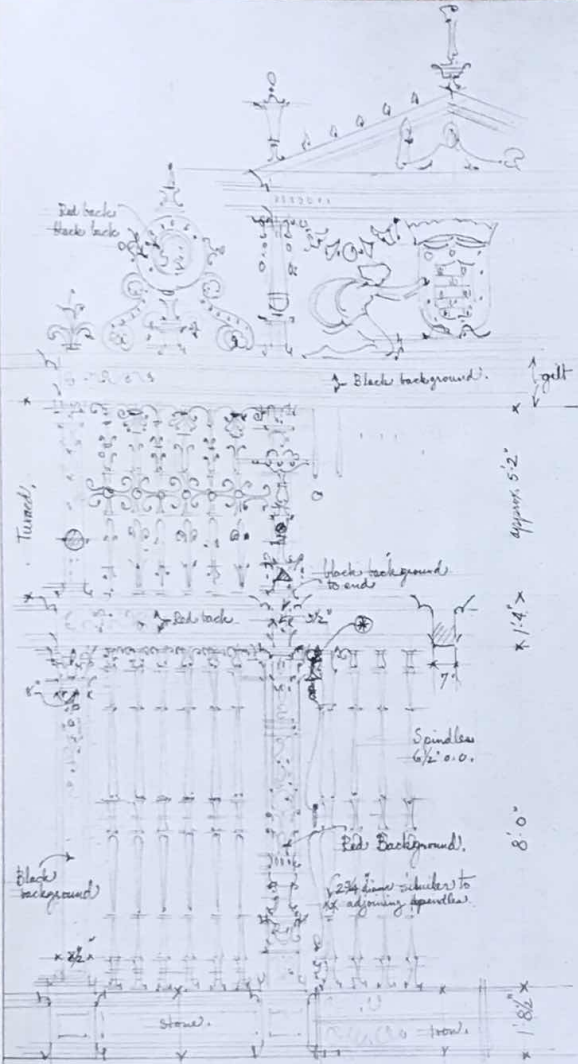 Red back
black back
↑ Black background.
gilt
Turned,
approx. 5'2"
black background
to end
Red back
3½"
1'.4"
7"
Spindles
6½" o.o.
8'.0"
Red Background.
Black
background
2¾ diam similar to
adjoining spindles
1' 8½"
stone.
iron.